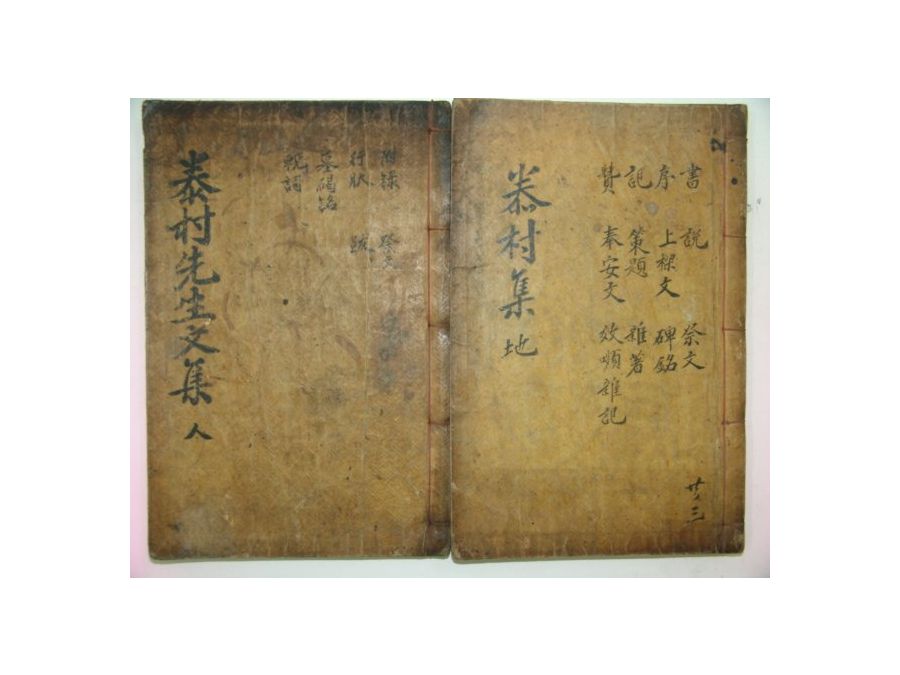 書 說 祭文
序 上樑文 碑銘
記 策題 雜著
贊 奉安文 效顰雜記
泰村集 地
共三
附錄 祭文
行狀
墓碣銘
輓詞
泰村先生文集 人